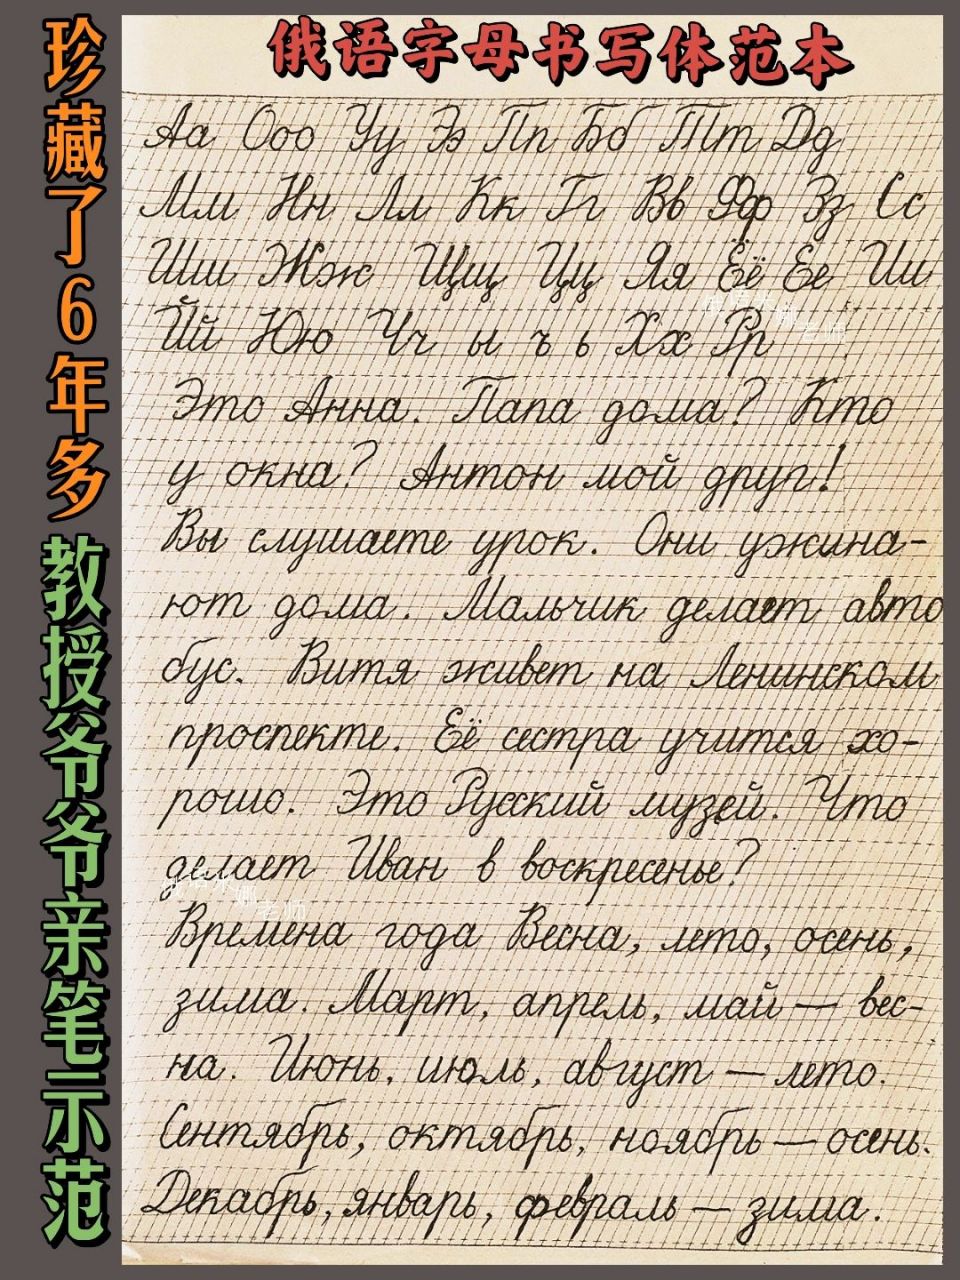 俄语字母书写体范本
珍藏了6年多
教授爷爷亲笔示范
Аа Ооо Уу Ээ Пп Бб Тт Дд
Мм Нн Лл Кк Гг Вв Фф Зз Сс
Шш Жж Щщ Цц Яя Ёё Ее Ии
Йй Юю Чч ы ъ ь Хх Рр
Это Анна. Папа дома? Кто
у окна? Антон мой друг!
Вы слушаете урок. Они ужина-
ют дома. Мальчик делает авто
бус. Витя живет на Ленинском
проспекте. Её сестра учится хо-
рошо. Это Русский музей. Что
делает Иван в воскресенье?
Времена года Весна, лето, осень,
зима. Март, апрель, май — вес-
на. Июнь, июль, август — лето.
Сентябрь, октябрь, ноябрь — осень.
Декабрь, январь, февраль — зима.
俄语米娜老师
俄语米娜老师